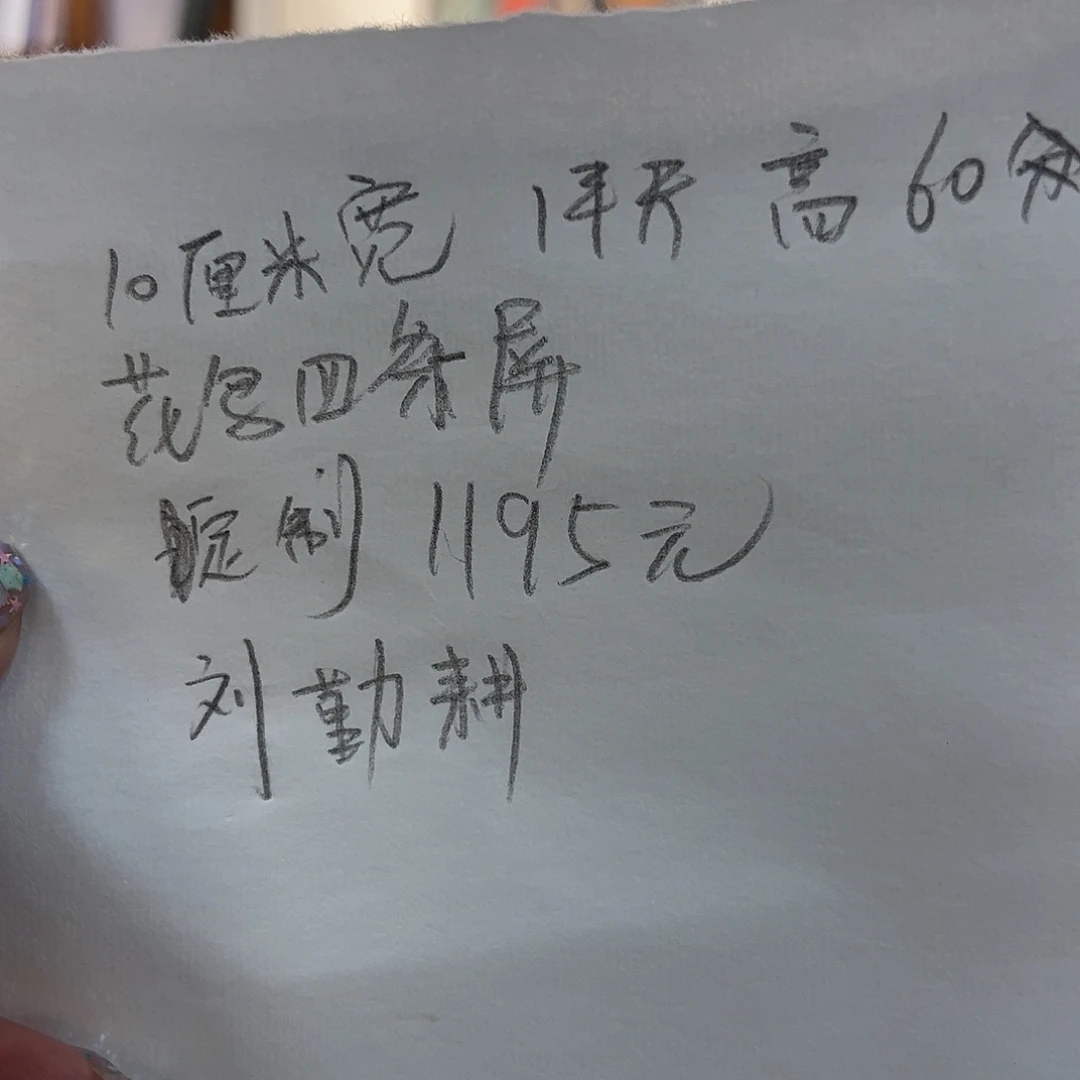 10厘米宽 1平尺 高60分
花鸟四条屏
定制1195元
刘勤耕